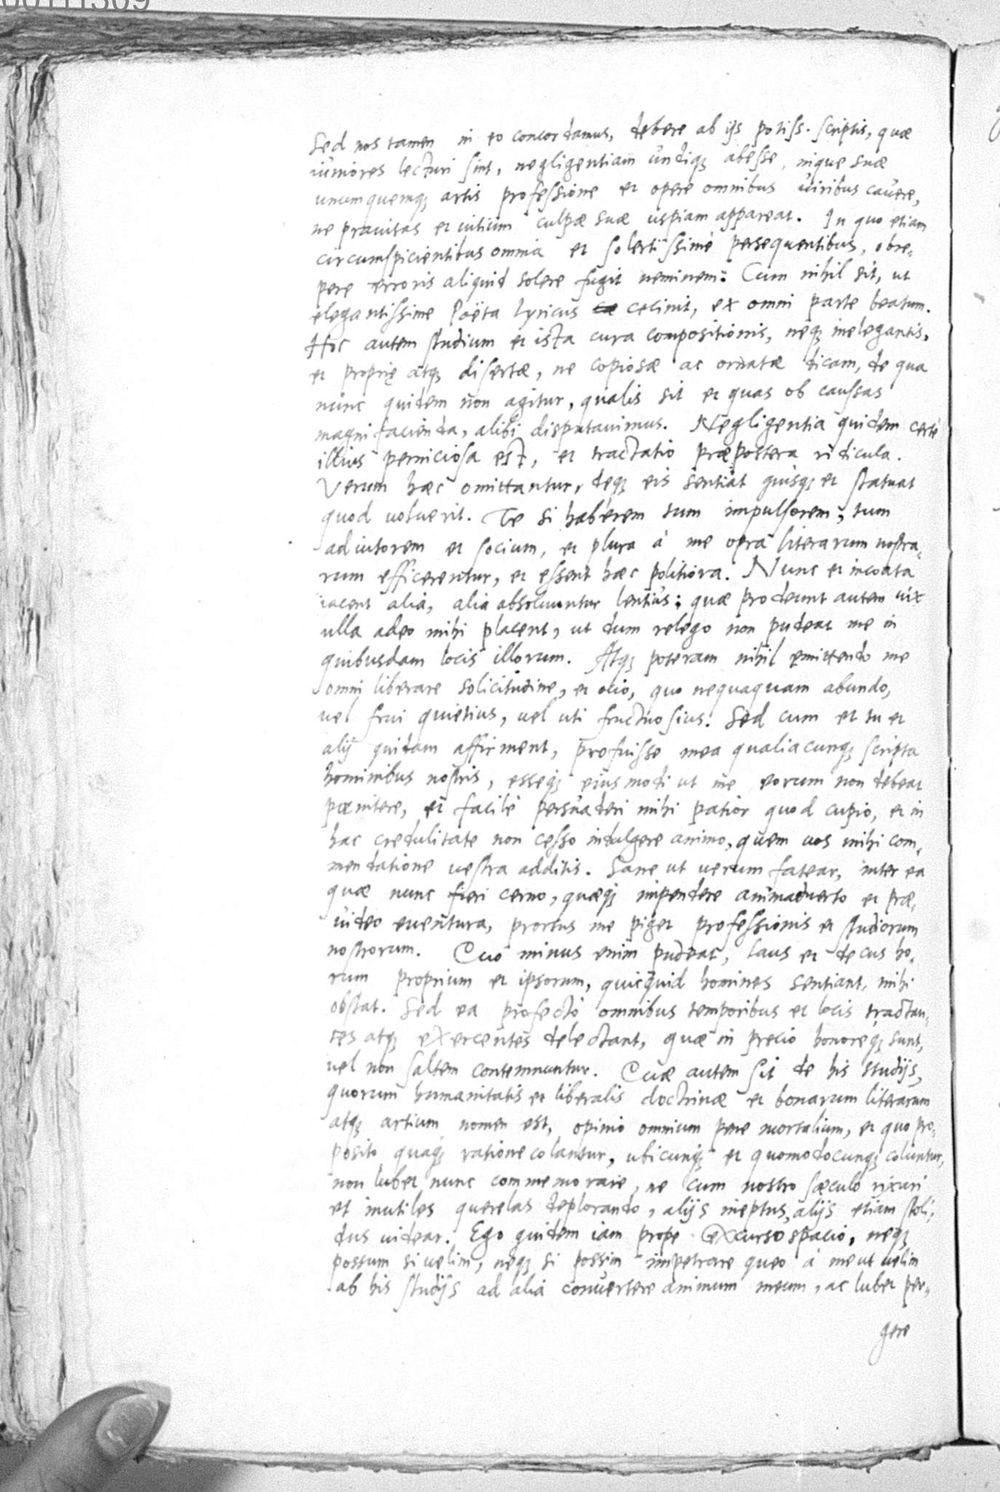 Sed nos tamen in eo concordamus, debere ab ijs potiss. scriptis, quae
iuniores lecturi sint, negligentiam undiq; abesse, inque suae
unumquemq; artis professione et opere omnibus viribus cavere,
ne pravitas et vitium culpae suae uspiam appareat. In quo etiam
circumspicientibus omnia et solertissimè persequentibus, obre-
pere erroris aliquid solere fugit neminem: Cum nihil sit, ut
elegantissime Poëta Lyricus cecinit, ex omni parte beatum.
Hoc autem studium et ista cura compositionis, neq; inelegantis,
et proprię atq; disertæ, ne copiosæ ac ornatæ dicam, de qua
nunc quidem non agitur, qualis sit et quas ob caussas
magni facienda, alibi disputavimus. Negligentia quidem certè
illius perniciosa est, et tractatio præpostera ridicula.
Verum hæc omittantur, deq; eis sentiat quisq; et statuat
quod voluerit. Te si haberem tum impulsorem, tum
adiutorem et socium, et plura à me opera literarum nostra-
rum efficerentur, et essent hæc politiora. Nunc et incoata
iacent alia, alia absolvuntur lentius: quæ prodeunt autem vix
ulla adeo mihi placent, ut dum relego non pudeat me in
quibusdam locis illorum. Atq; poteram nihil emittendo me
omni liberare solicitudine, et ocio, quo nequaquam abundo,
vel frui quietius, vel uti fructuosius. Sed cum et tu et
alij quidam affirment, profuisse mea qualiacunq; scripta
hominibus nostris, esseq; eiusmodi ut me eorum non debeat
pœnitere, et facilè persuaderi mihi patior quod cupio, et in
hac credulitate non cesso indulgere animo, quem vos mihi com-
mendatione vestra additis. Sane ut verum fatear, inter ea
quæ nunc fieri cerno, quæq; impendere animadverto et præ-
video eventura, prorsus me piget professionis et studiorum
nostrorum. Quo minus enim pudeat, laus et decus ho-
rum proprium et ipsorum, quicquid homines sentiant, mihi
obstat. Sed ea profectò omnibus temporibus et locis tractan-
tes atq; exercentes delectant, quæ in precio honoreq; sunt,
vel non saltem contemnuntur. Quæ autem sit de his studijs,
quorum humanitatis et liberalis doctrinæ et bonarum literarum
atq; artium nomen est, opinio omnium pene mortalium, et quo pro-
posito quaq; ratione colantur, ubicunq; et quomodocunq; coluntur,
non lubet nunc commemorare, ne cum nostro sæculo rixari
et inutiles querelas deplorando, alijs ineptus, alijs etiam stoli-
dus videar. Ego quidem iam prope excurso spacio, neq;
possum si velim, neq; si possim impetrare queo à me ut velim
ab his studijs ad alia convertere animum meum, ac lubet per-
gere